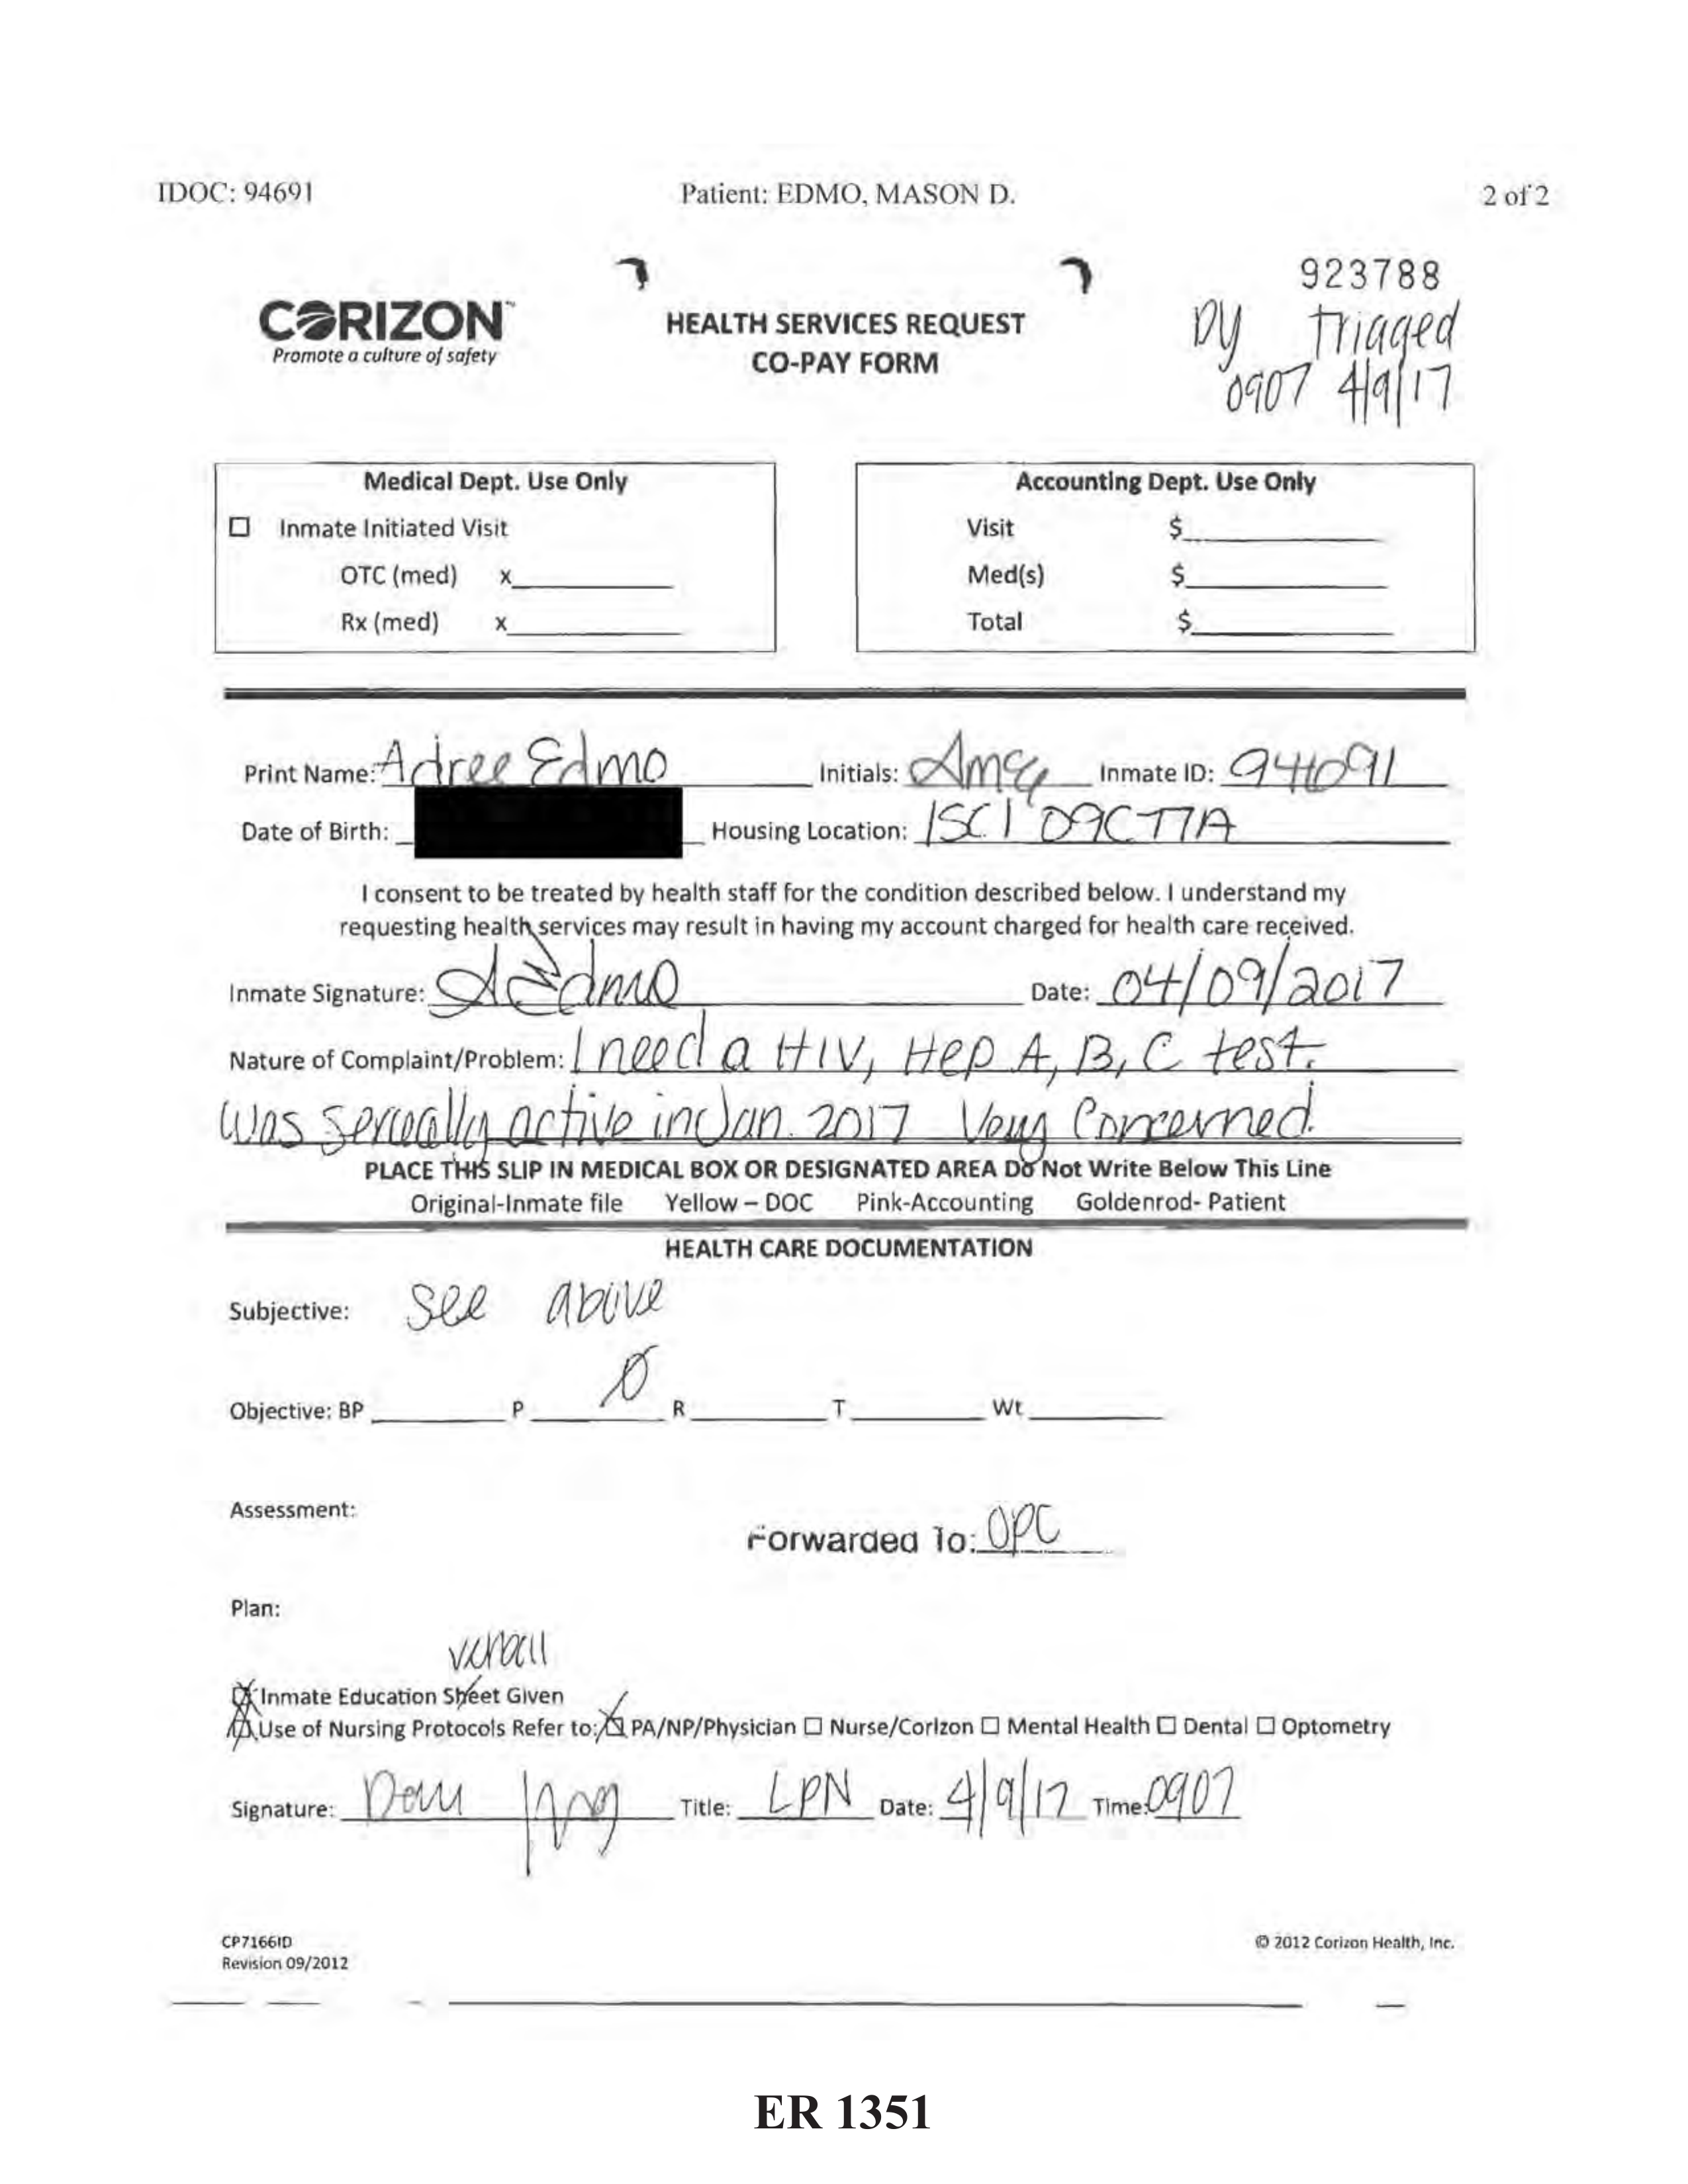 IDOC: 94691 Patient: EDMO, MASON D. 2 of 2
923788
CORIZON™
Promote a culture of safety
HEALTH SERVICES REQUEST
CO-PAY FORM
triaged
0907 4/9/17
Medical Dept. Use Only
☐ Inmate Initiated Visit
OTC (med) x
Rx (med) x
Accounting Dept. Use Only
Visit $
Med(s) $
Total $
Print Name: Adree Edmo Initials: Inmate ID: 94691
Date of Birth: Housing Location: ISCI 09C77A
I consent to be treated by health staff for the condition described below. I understand my
requesting health services may result in having my account charged for health care received.
Inmate Signature: AEdmo Date: 04/09/2017
Nature of Complaint/Problem: I need a HIV, Hep A, B, C test.
Was sexually active in Jan. 2017 Very Concerned.
PLACE THIS SLIP IN MEDICAL BOX OR DESIGNATED AREA Do Not Write Below This Line
Original-Inmate file Yellow – DOC Pink-Accounting Goldenrod- Patient
HEALTH CARE DOCUMENTATION
Subjective: see above
Ø
Objective: BP P R T Wt
Assessment:
Forwarded To: OPC
Plan:
verball
☒ Inmate Education Sheet Given
☒ Use of Nursing Protocols Refer to: ☒ PA/NP/Physician ☐ Nurse/Corizon ☐ Mental Health ☐ Dental ☐ Optometry
Signature: Title: LPN Date: 4/9/17 Time: 0907
CP7166ID
Revision 09/2012
© 2012 Corizon Health, Inc.
ER 1351